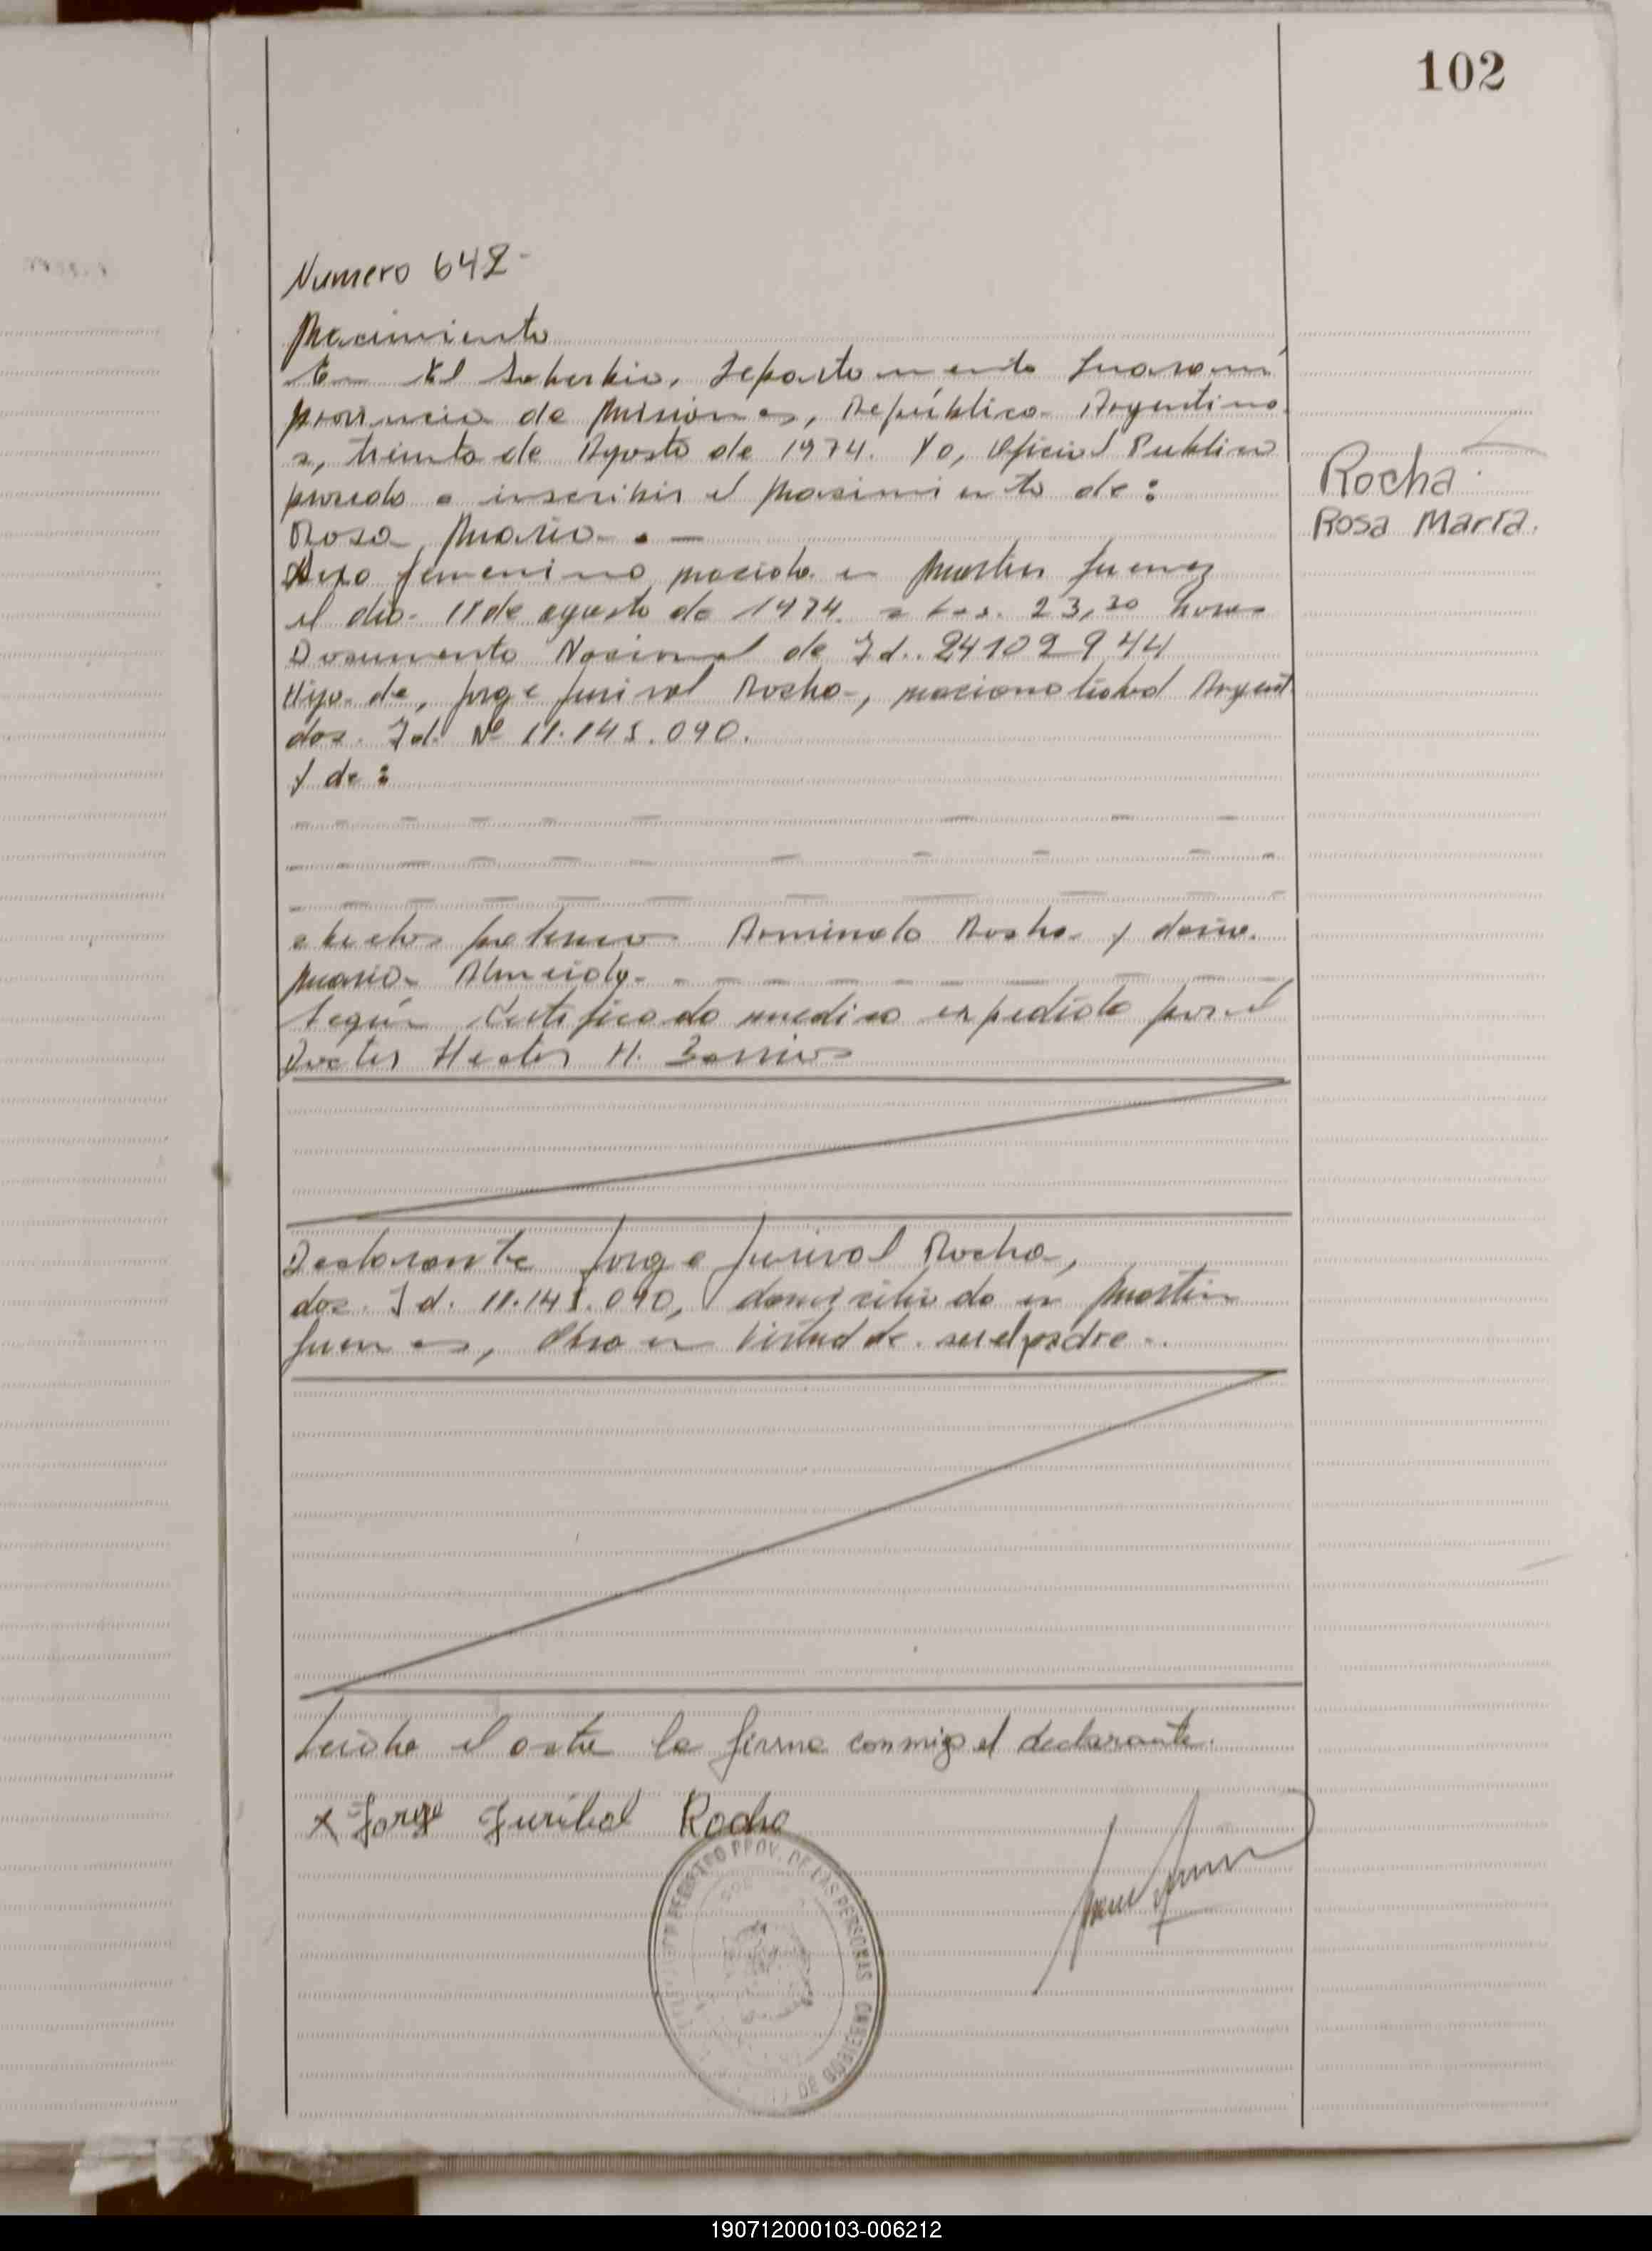 102
Numero 642-
Nacimiento
En El Soberbio, Departamento Guaraní
provincia de Misiones, República Argentina
a, treinta de Agosto de 1974. Yo, Oficial Publico
procedo a inscribir el nacimiento de:
Rosa Maria. —
Rocha.
Rosa María.
Sexo femenino nacida en Martin Guemez
el dia 18 de agosto de 1974 a las 23,30 horas
Documento Nacional de Id. 24102944
Hija de, Jorge Jurival Rocha, nacionalidad Argent.
doc. Id. Nº 11.145.090.
y de:
abuelos paternos Arminda Rocha y doña
Maria Almeida
Según Certificado medico expedido por el
Doctor Hector H. Barrios
Declarante Jorge Jurival Rocha,
doc. Id. 11.145.090, domiciliado en Martin
Guemes, Obra en Virtud de ser el padre.
Leida el acta la firma conmigo el declarante.
x Jorge Juribal Rocha
REGISTRO PROV. DE LAS PERSONAS GOBIERNO DE
190712000103-006212